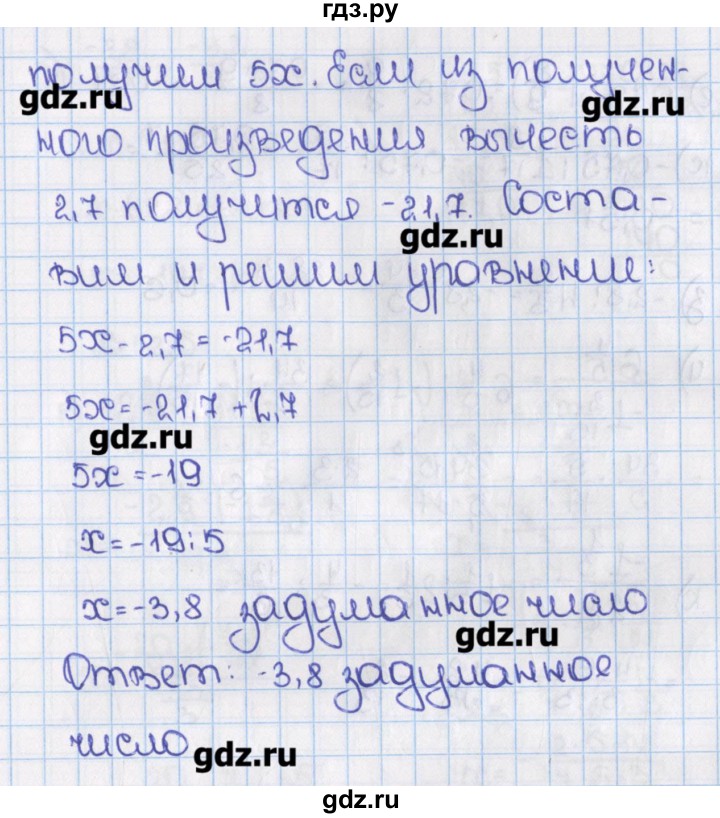 гдз.ру
получим 5х. Если из получен-
gdz.ru gdz.ru
ного произведения вычесть
2,7 получится -21,7. Соста-
gdz.ru
вим и решим уравнение:
5х - 2,7 = -21,7
5х = -21,7 + 2,7
gdz.ru
5х = -19
х = -19:5
х = -3,8 задуманное число
gdz.ru
Ответ: -3,8 задуманное
число gdz.ru
gdz.ru